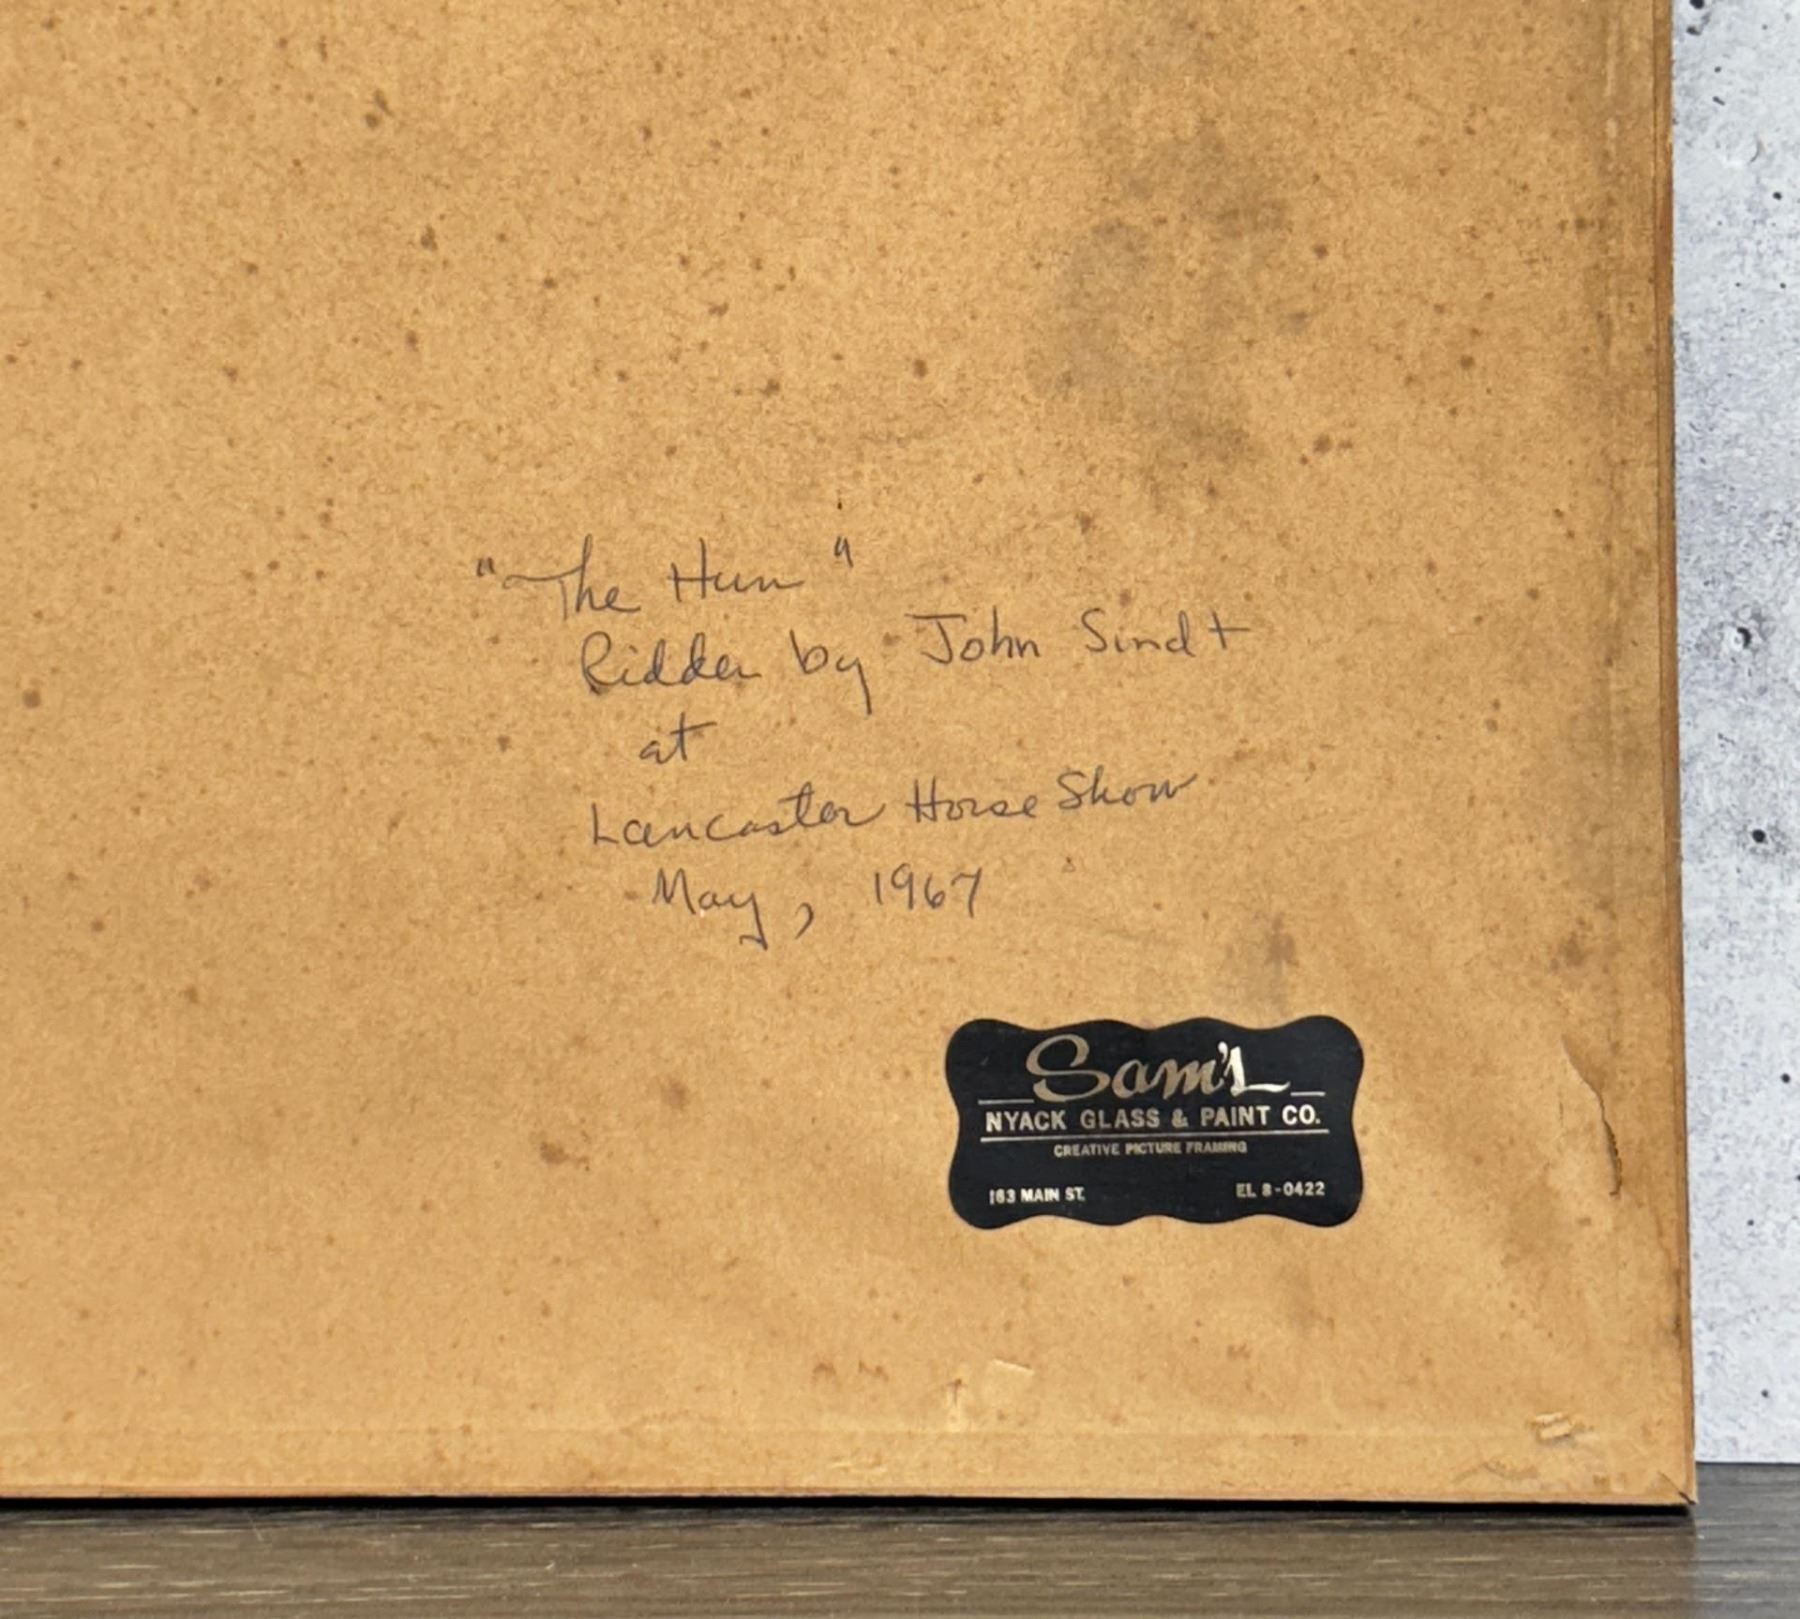 "The Hun"
Ridden by John Sindt
at
Lancaster Horse Show
May, 1967
Sam'l
NYACK GLASS & PAINT CO.
CREATIVE PICTURE FRAMING
163 MAIN ST. EL 8-0422